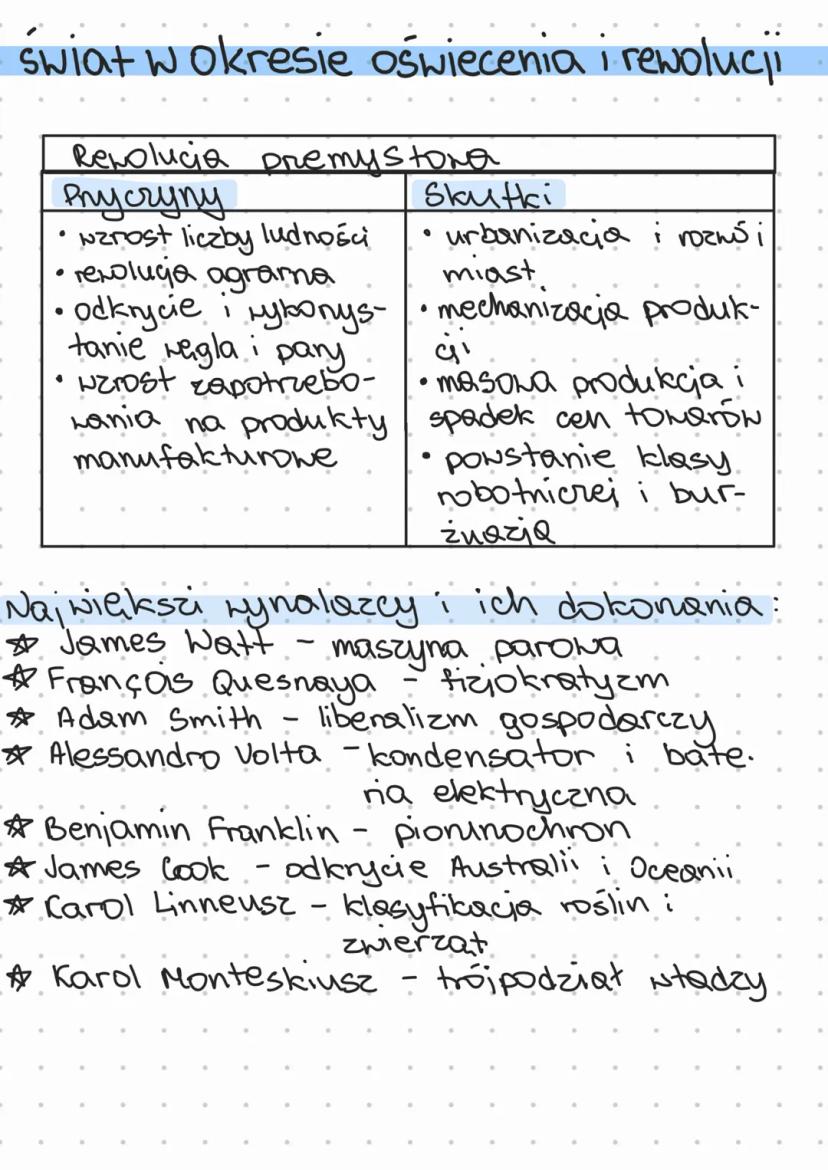 świat w okresie oświecenia i rewolucji
Rewolucja przemysłowa
Przyczyny
• wzrost liczby ludności
• rewolucja agrarna
• odkrycie i wykorzys-
tanie węgla i pary
• wzrost zapotrzebo-
wania na produkty
manufakturowe
Skutki
• urbanizacja i rozwój
miast
• mechanizacja produk-
cji
• masowa produkcja i
spadek cen towarów
• powstanie klasy
robotniczej i bur-
żuazja
Najwięksi wynalazcy i ich dokonania:
☆ James Watt - maszyna parowa
☆ François Quesnaya - fizjokratyzm
☆ Adam Smith - liberalizm gospodarczy
☆ Alessandro Volta - kondensator i bate-
ria elektryczna
☆ Benjamin Franklin - piorunochron
☆ James Cook - odkrycie Australii i Oceanii
☆ Carol Linneusz - klasyfikacja roślin i
zwierząt
☆ Karol Monteskiusz - trójpodział władzy